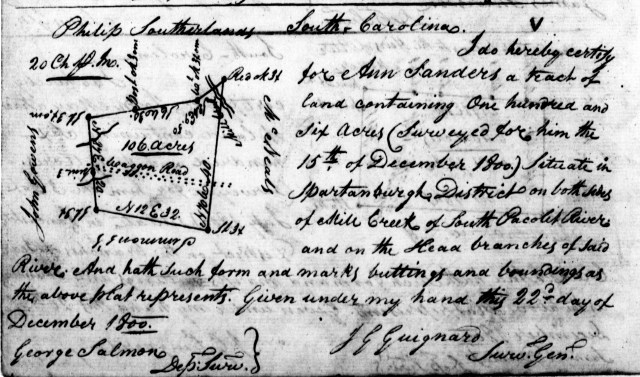 Philip Southerlands South Carolina.
20 Ch. p. In.
I do hereby certify
for Ann Sanders a tract of
land containing One hundred and
Six Acres (Surveyed for him the
15th. of December 1800.) Situate in
Spartanburgh District on both sides
of Mill Creek of South Pacolet River
and on the Head branches of said
River. And hath such form and marks buttings and boundings as
the above plat represents. Given under my hand this 22d. day of
December 1800.
George Salmon
Dep. Surv.
J G Guignard
Surv. Gen.
Red ok 3x
106 Acres
Wagon Road
John Gowens
McNeals
N 12 E 32.
Simmons's